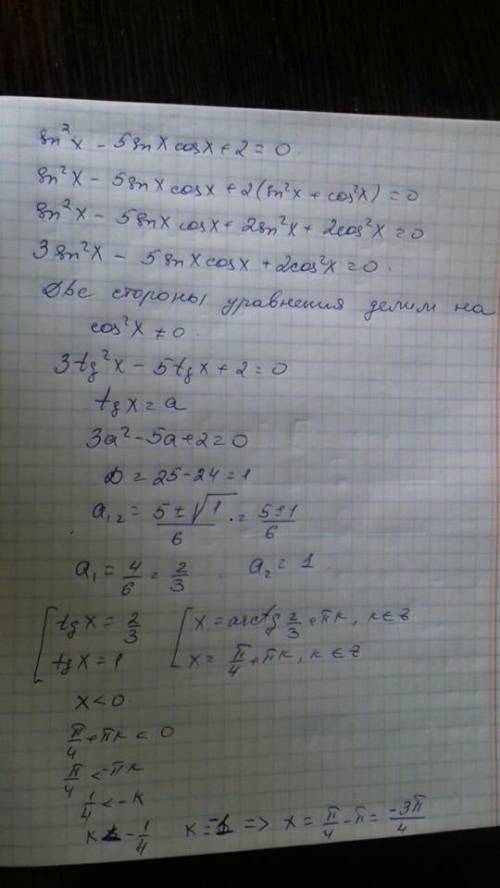 sin²x - 5sinx cosx + 2 = 0.
sin²x - 5sinx cosx + 2(sin²x + cos²x) = 0
sin²x - 5sinx cosx + 2sin²x + 2cos²x = 0
3sin²x - 5sinx cosx + 2cos²x = 0.
Две стороны уравнения делим на
cos²x ≠ 0.
3tg²x - 5tgx + 2 = 0
tgx = a
3a² - 5a + 2 = 0
D = 25 - 24 = 1
a₁,₂ = (5 ± √1)/6 = (5 ± 1)/6
a₁ = 4/6 = 2/3 a₂ = 1
[ tgx = 2/3 [ x = arctg 2/3 + πk, k ∈ z
tgx = 1 x = π/4 + πk, k ∈ z
x < 0
π/4 + πk < 0
π/4 < -πk
1/4 < -k
k < -1/4 k = -1 => x = π/4 - π = -3π/4